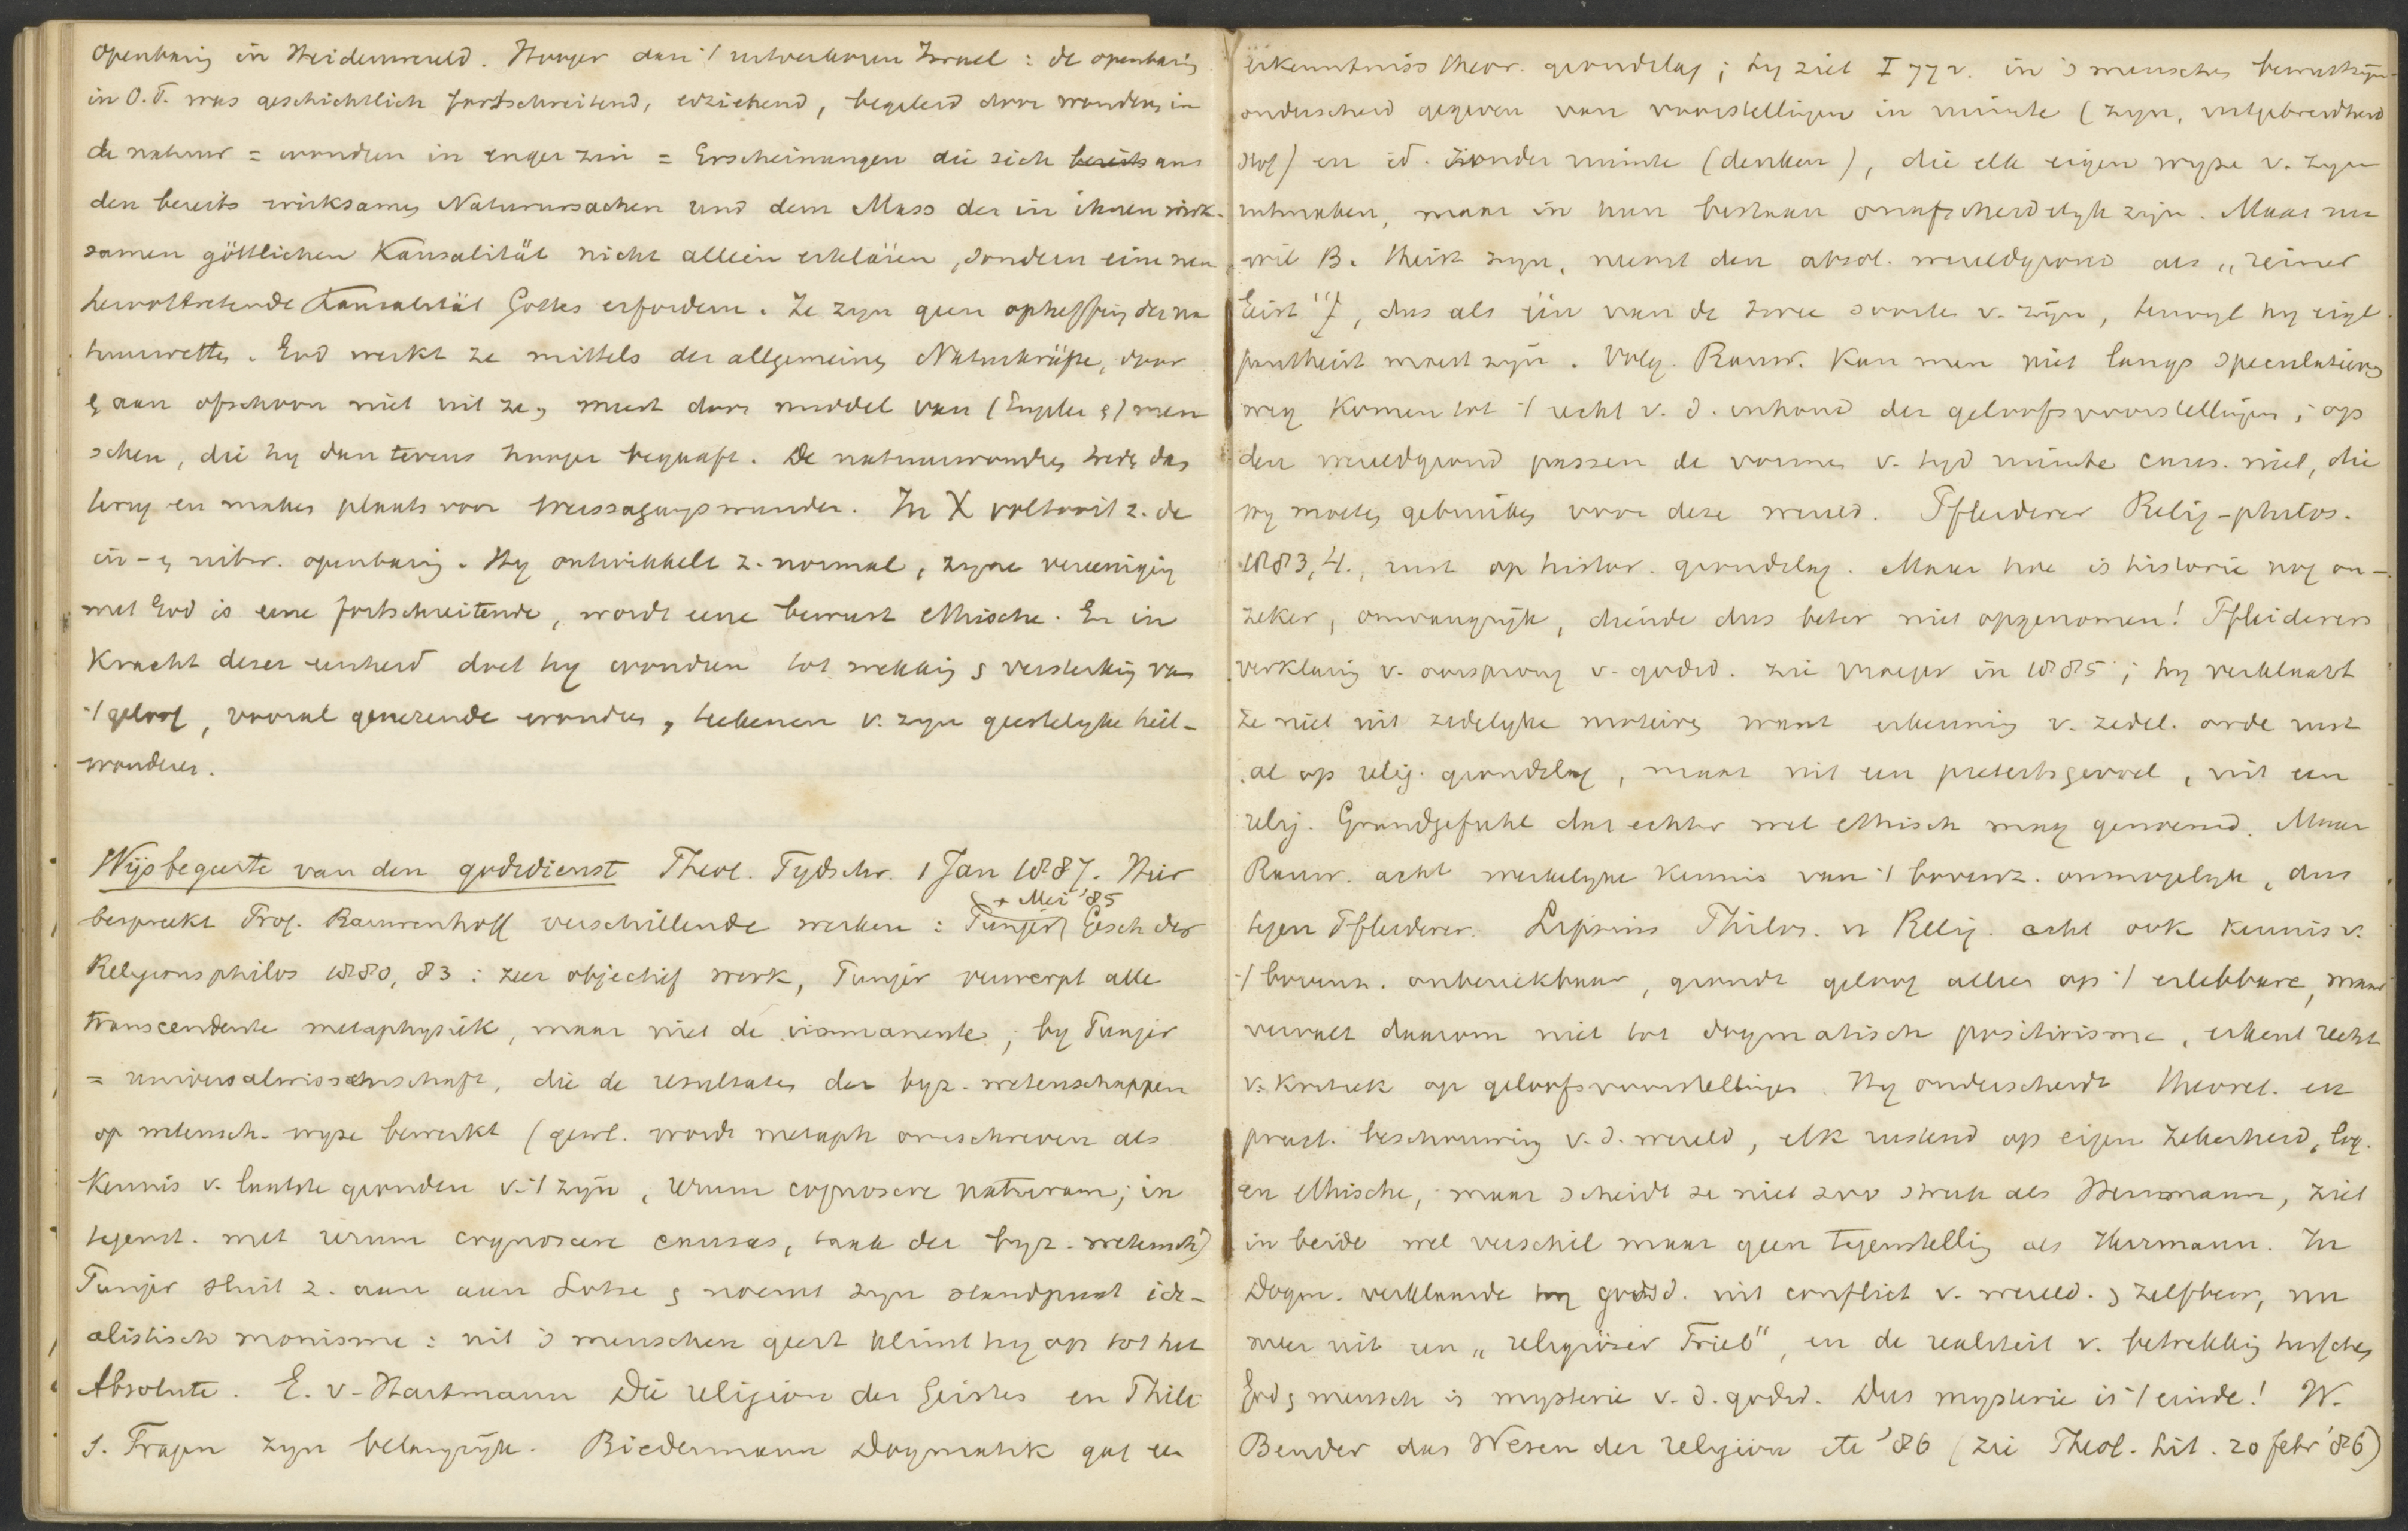 Openbaring in Heidenwereld. Hooger dan 't uitverkoren Israel: de openbaring
in O.T. was geschichtlich fortschreitend, erziehend, begeleid door wonderen in
de natuur = wonderen in enger zin = Erscheinungen die sich bereits aus
den bereits wirksamen Naturursachen und dem Mass der in ihnen wirk-
samen göttlichen Kausalität nicht allein erklären, sondern eine neu
hervortretende Kausalität Gottes erfordern. Ze zyn geen opheffing der na
tuurwetten. God werkt ze mittels der allgemeinen Naturkräfte, door
& aan ofschoon niet uit ze, meest door middel van (Engelen &) men
schen, die hy dan tevens hooger begaaft. De natuurwonderen treden dus
terug en maken plaats voor Weissagungswunder. In X voltooit z. de
in- & uitw. openbaring. Hy ontwikkelt z. normal, zyne vereeniging
met God is eene fortschreitende, wordt eene bewust ethische. En in
kracht dezer eenheid doet hy wonderen tot wekking & versterking van
't geloof, vooral genezende wonderen, teekenen v. zyn geestelyke heil-
wonderen.
Wijsbegeerte van den godsdienst Theol. Tydschr. 1 Jan 1887. Hier
+ Mei '85
bespreekt Prof. Rauwenhoff verschillende werken: Punjer, Gesch der
Religionsphilos 1880, 83: zeer objectief werk, Punjer verwerpt alle
transcendente metaphysiek, maar niet de immanente; by Punjer
= universalwissenschaft, die de resultaten der byz. wetenschappen
op wetensch. wyze bewerkt (gewl. wordt metaph omschreven als
kennis v. laatste gronden v. 't zyn, rerum cognoscere naturam; in
tegenst. met rerum cognoscere causas, taak der byz. wetensch)
Punjer sluit z. aan aan Lotze & noemt zyn standpunt ide-
alistisch monisme: uit 's menschen geest klimt hy op tot het
Absolute. E. v. Hartmann Die religion des Geistes en Phil.
s. Fragen zyn belangryk. Biedermann Dogmatik gaf een
erkenntniss theor. grondslag; hy ziet I 77 v. in 's menschen bewustzyn
onderscheid gegeven van voorstellingen in ruimte (zyn, uitgebreidheid
stof) en id. zonder ruimte (denken), die elk eigen wyze v. zyn
uitmaken, maar in hun bestaan onafscheidelyk zyn. Maar nu
wil B. theist zyn, neemt den absol. wereldgrond als „reiner
Geist", dus als één van de twee soorten v. zyn, terwyl hy eigl.
pantheist moest zyn. Volg. Rauw. kan men niet langs speculatieven
weg komen tot 't recht v. d. inhoud der geloofsvoorstellingen; op
den wereldgrond passen de vormen v. tyd ruimte caus. niet, die
wy moeten gebruiken voor deze wereld. Pfleiderer Relig-philos.
1883, 4., rust op histor. grondslag. Maar hoe is historie nog on-
zeker, omvangryk, diende dus beter niet opgenomen! Pfleiderers
verklaring v. oorsprong v. godsd. zie vroeger in 1885; hy verklaart
ze niet uit zedelyke motieven want erkenning v. zedel. orde rust
al op relig. grondslag, maar uit een pieteitsgevoel, uit een
relig. Grundgefuhl dat echter wel ethisch mag genoemd. Maar
Rauw. acht werkelyke kennis van 't bovenz. onmogelyk, dus
tegen Pfleiderer. Lipsius Philos. u Relig. acht ook kennis v.
't bovenz. onbereikbaar, grondt geloof alleen op 't erlebbare, maar
vervalt daarom niet tot dogmatisch positivisme, erkent recht
v. kritiek op geloofsvoorstellingen. Hy onderscheidt theoret. en
pract. beschouwing v. d. wereld, elk rustend op eigen zekerheid, log.
en ethische, maar scheidt ze niet zoo strak als Herrmann, ziet
in beide wel verschil maar geen tegenstelling als Herrmann. In
Dogm. verklaarde hy godsd. uit conflict v. wereld. & zelfbew, nu
meer uit een „religiöser Trieb", en de realiteit v. betrekking tusschen
God & mensch is mysterie v. d. godsd. Dus mysterie is 't einde! W.
Bender das Wesen der religion etc '86 (zie Theol. Lit. 20 febr '86)